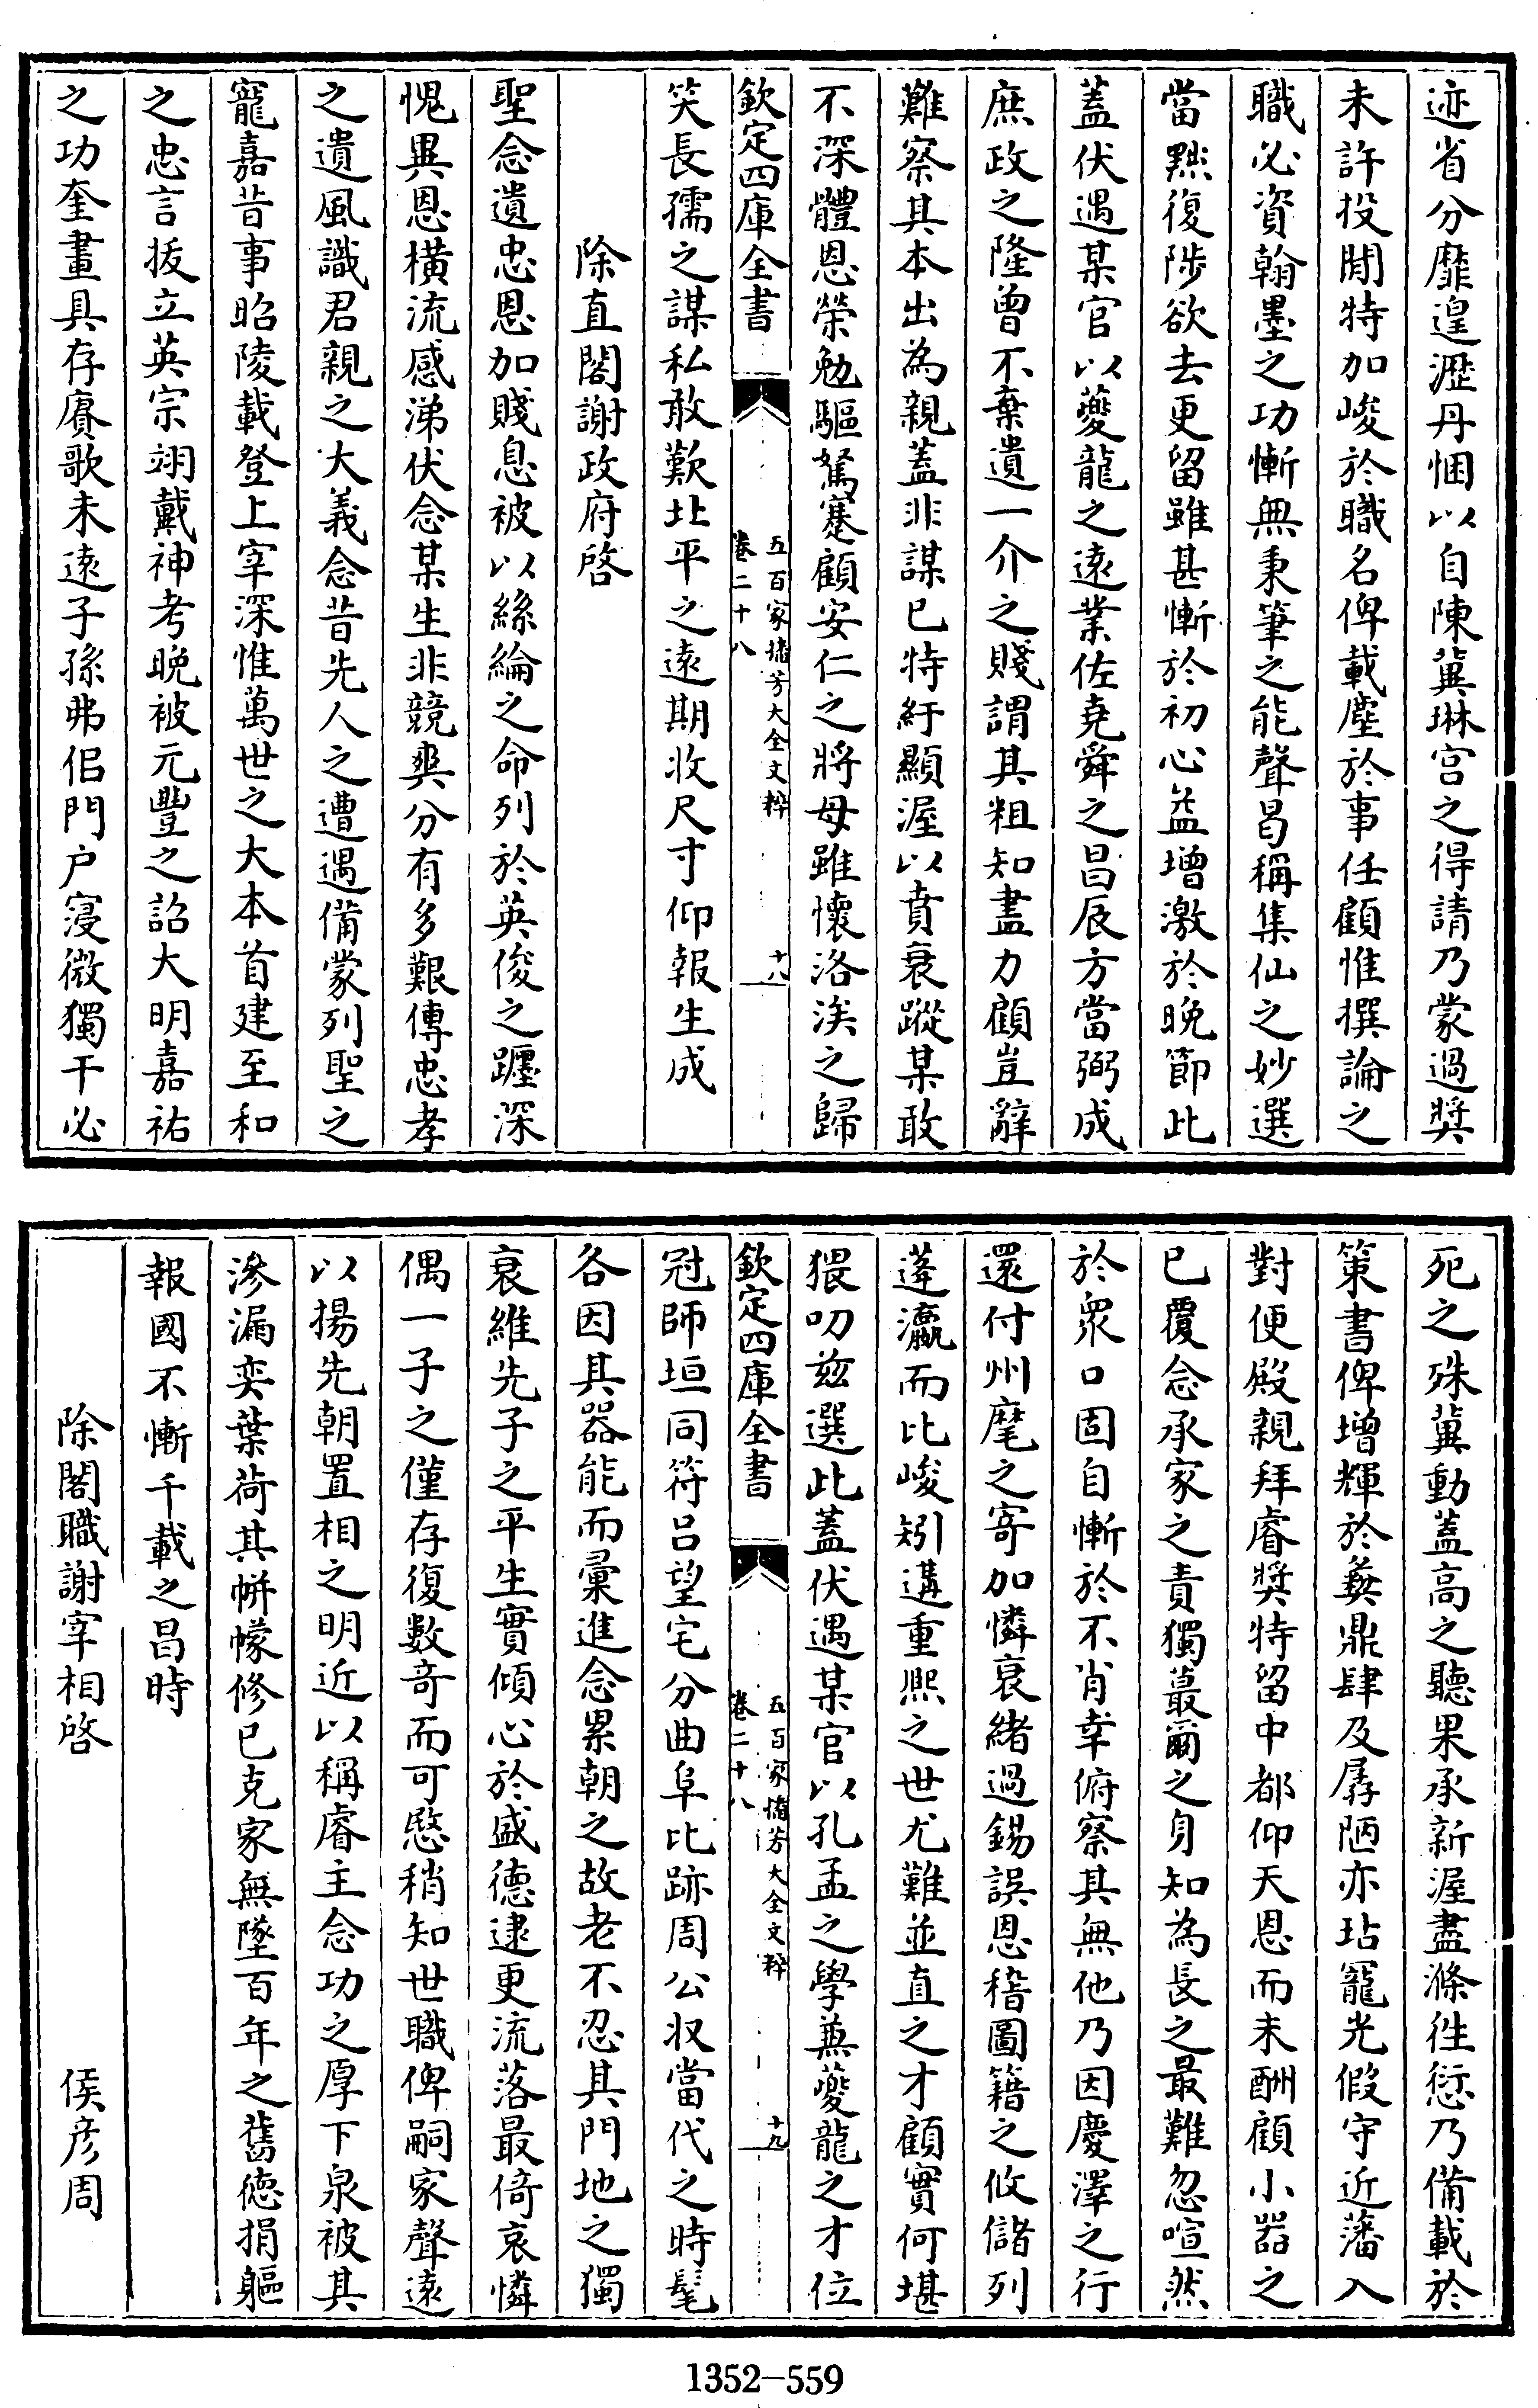 迹省分靡遑瀝丹悃以自陳冀琳宫之得請乃蒙過奬
未許投閒特加峻於職名俾載塵於事任顧惟撰論之
職必資翰墨之功慚無秉筆之能聲曷稱集仙之妙選
當黜復陟欲去更留雖甚慚於初心益增激於晚節此
蓋伏遇某官以夔龍之遠業佐堯舜之昌辰方當弼成
庶政之隆曾不棄遺一介之賤謂其粗知盡力顧豈辭
難察其本出為親蓋非謀已特紆顯渥以賁衰蹤某敢
不深體恩榮勉驅駑蹇顧安仁之將母雖懷洛涘之歸
欽定四庫全書
五百家播芳大全文粹
卷二十八
十八
笑長孺之謀私敢歎北平之遠期收尺寸仰報生成
除直閣謝政府啓
聖念遺忠恩加賤息被以絲綸之命列於英俊之躔深
愧異恩橫流感涕伏念某生非競爽分有多艱傳忠孝
之遺風識君親之大義念昔先人之遭遇備蒙列聖之
寵嘉昔事昭陵載登上宰深惟萬世之大本首建至和
之忠言扳立英宗翊戴神考晚被元豐之詔大明嘉祐
之功奎畫具存賡歌未遠子孫弗侣門户寖微獨干必
死之殊冀動蓋高之聽果承新渥盡滌徃愆乃備載於
策書俾增輝於彝鼎肆及孱陋亦玷寵光假守近藩入
對便殿親拜睿奬特留中都仰天恩而未酬顧小器之
已覆念承家之責獨蕞爾之身知為長之最難忽喧然
於衆口固自慚於不肖幸俯察其無他乃因慶澤之行
還付州麾之寄加憐衰緒過錫誤恩稽圖籍之攸儲列
蓬瀛而比峻矧遘重熙之世尤難並直之才顧實何堪
猥叨兹選此蓋伏遇某官以孔孟之學兼夔龍之才位
欽定四庫全書
五百家播芳大全文粹
卷二十八
十九
冠師垣同符吕望宅分曲阜比跡周公収當代之時髦
各因其器能而彙進念累朝之故老不忍其門地之獨
衰維先子之平生實傾心於盛德逮更流落最倚哀憐
偶一子之僅存復數奇而可愍稍知世職俾嗣家聲遠
以揚先朝置相之明近以稱睿主念功之厚下泉被其
滲漏奕葉荷其帡幪修已克家無墜百年之舊徳捐軀
報國不慚千載之昌時
除閣職謝宰相啓 侯彦周
1352—559